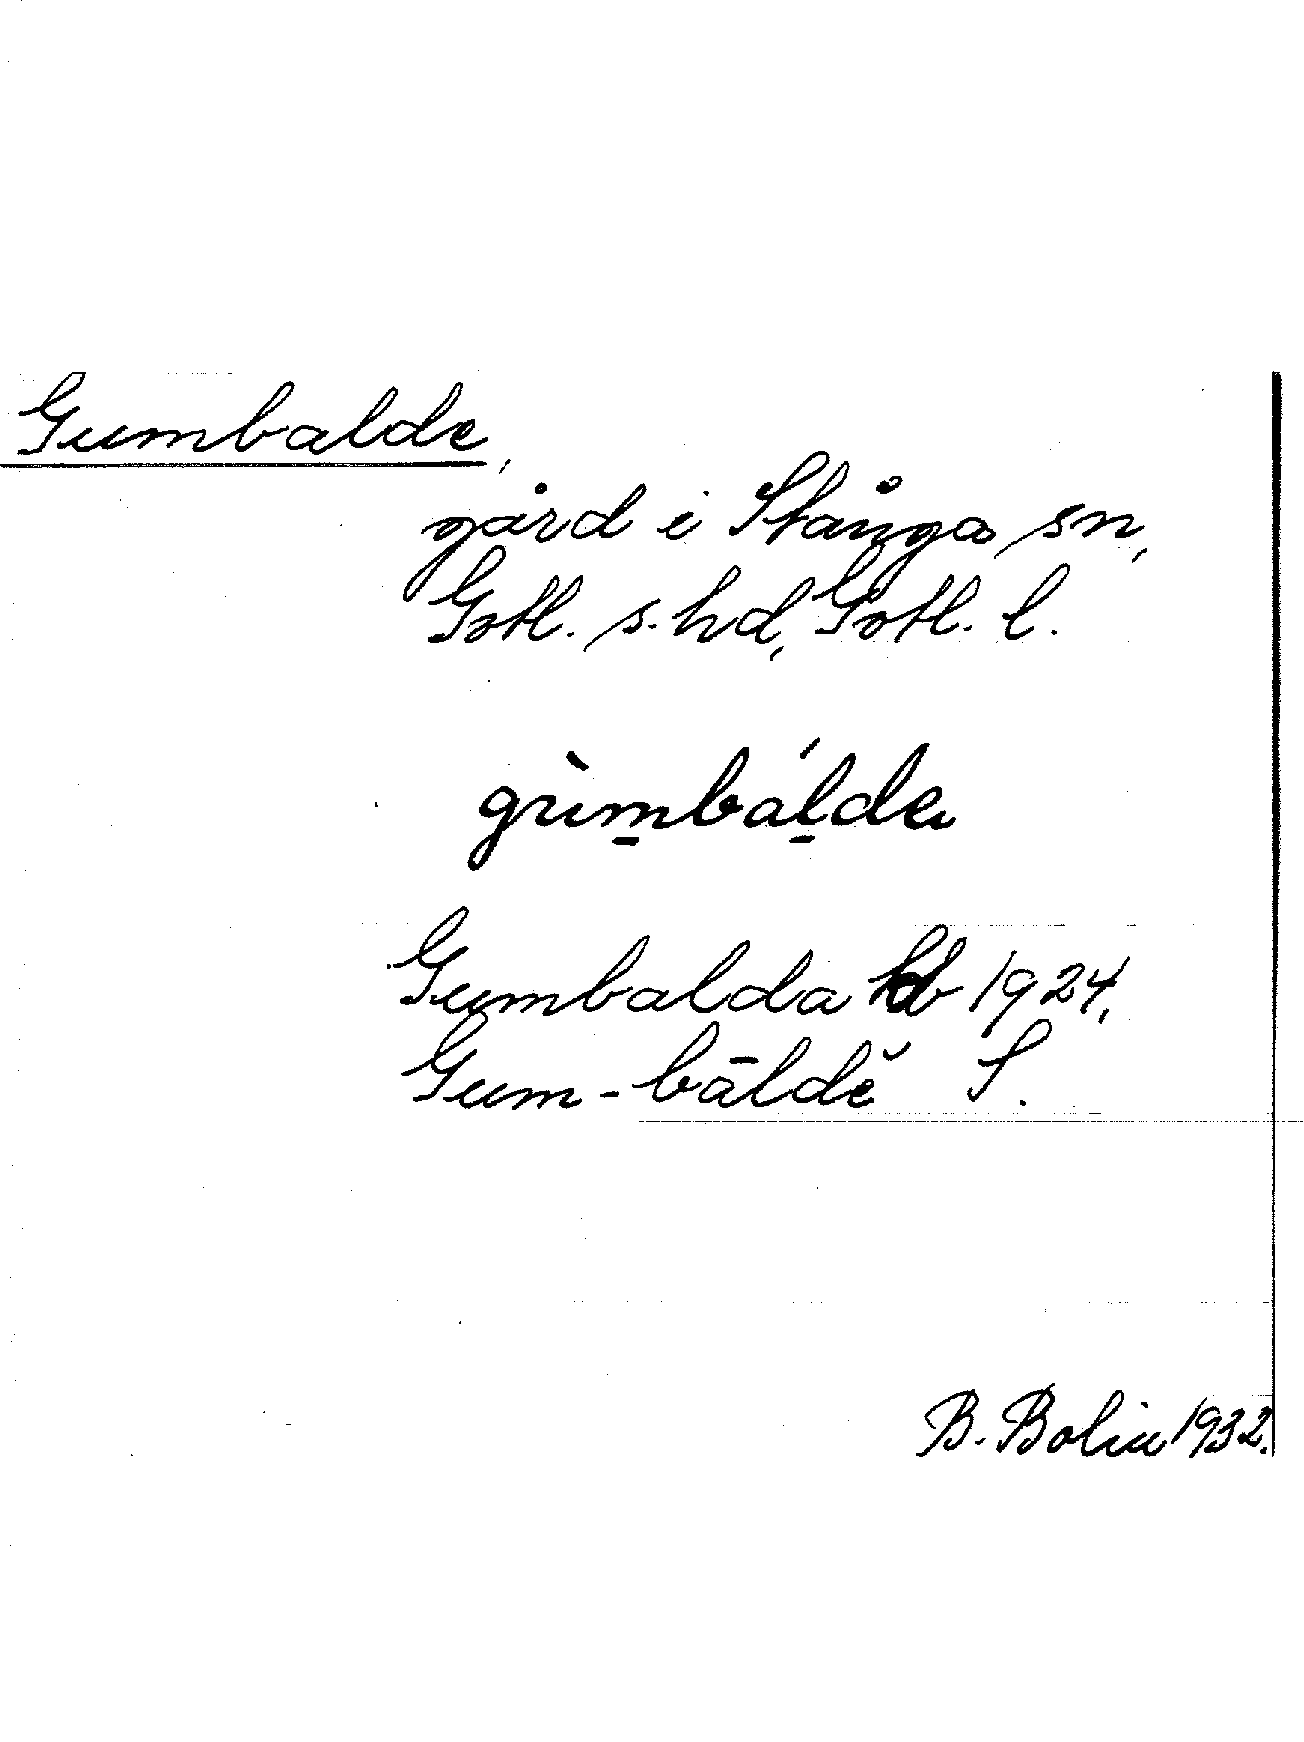 Gumbalde,
gård i Stånga sn,
Gotl. s. hd, Gotl. l.
gùm̠bál̠de
Gumbalda 1924,
Gum-bāldĕ S.
B. Bolin 1932.